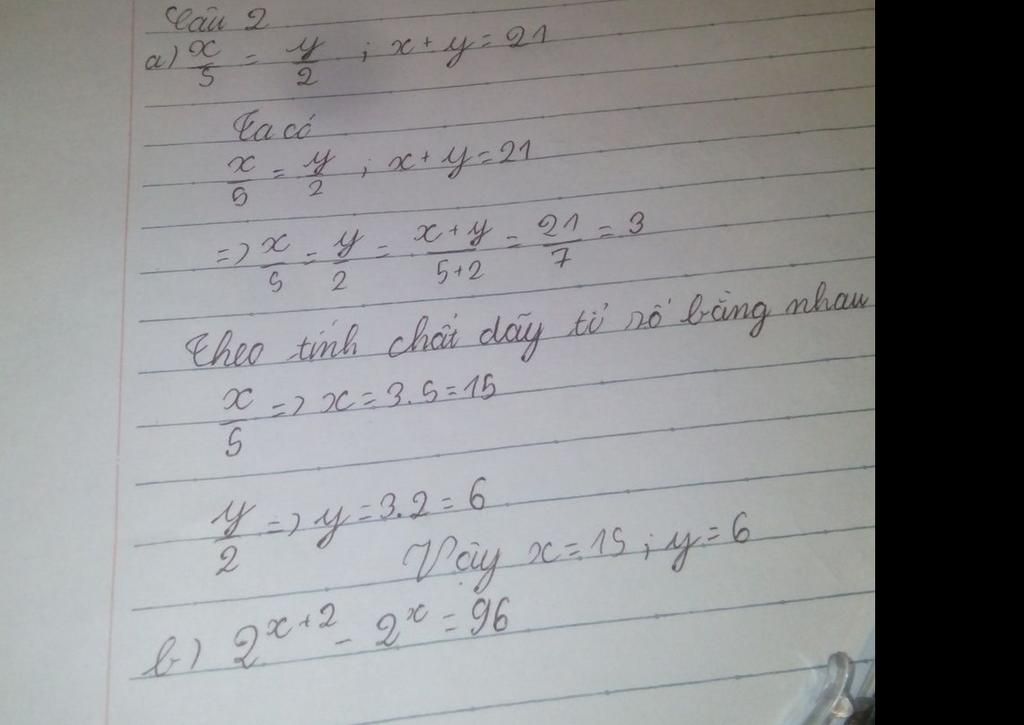 Câu 2
a) x/5 = y/2 ; x + y = 21
Ta có
x/5 = y/2 ; x + y = 21
=> x/5 = y/2 = x + y/5+2 = 21/7 = 3
Theo tính chất dãy tỉ số bằng nhau
x/5 => x = 3.5 = 15
y/2 => y = 3.2 = 6
Vậy x = 15 ; y = 6
b) 2^x+2 - 2^x = 96